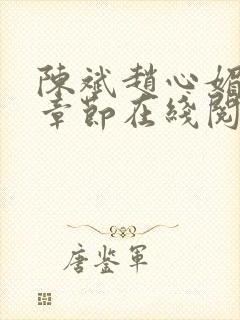 陳斌趙心媚
章節在綫閱
唐鉴军